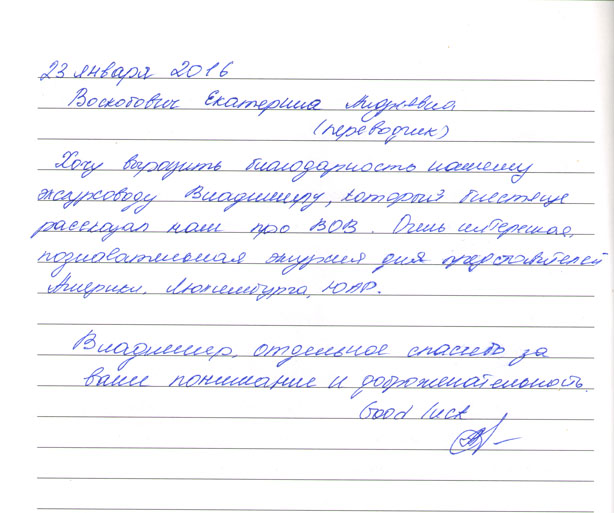 23 января 2016
Воскобович Екатерина Андреевна
(переводчик)
Хочу выразить благодарность нашему
экскурсоводу Владимиру, который блестяще
рассказал нам про ВОВ. Очень интересная,
познавательная экскурсия для представителей
Америки, Люксембурга, ЮАР.
Владимир, отдельное спасибо за
ваше понимание и доброжелательность.
Good luck